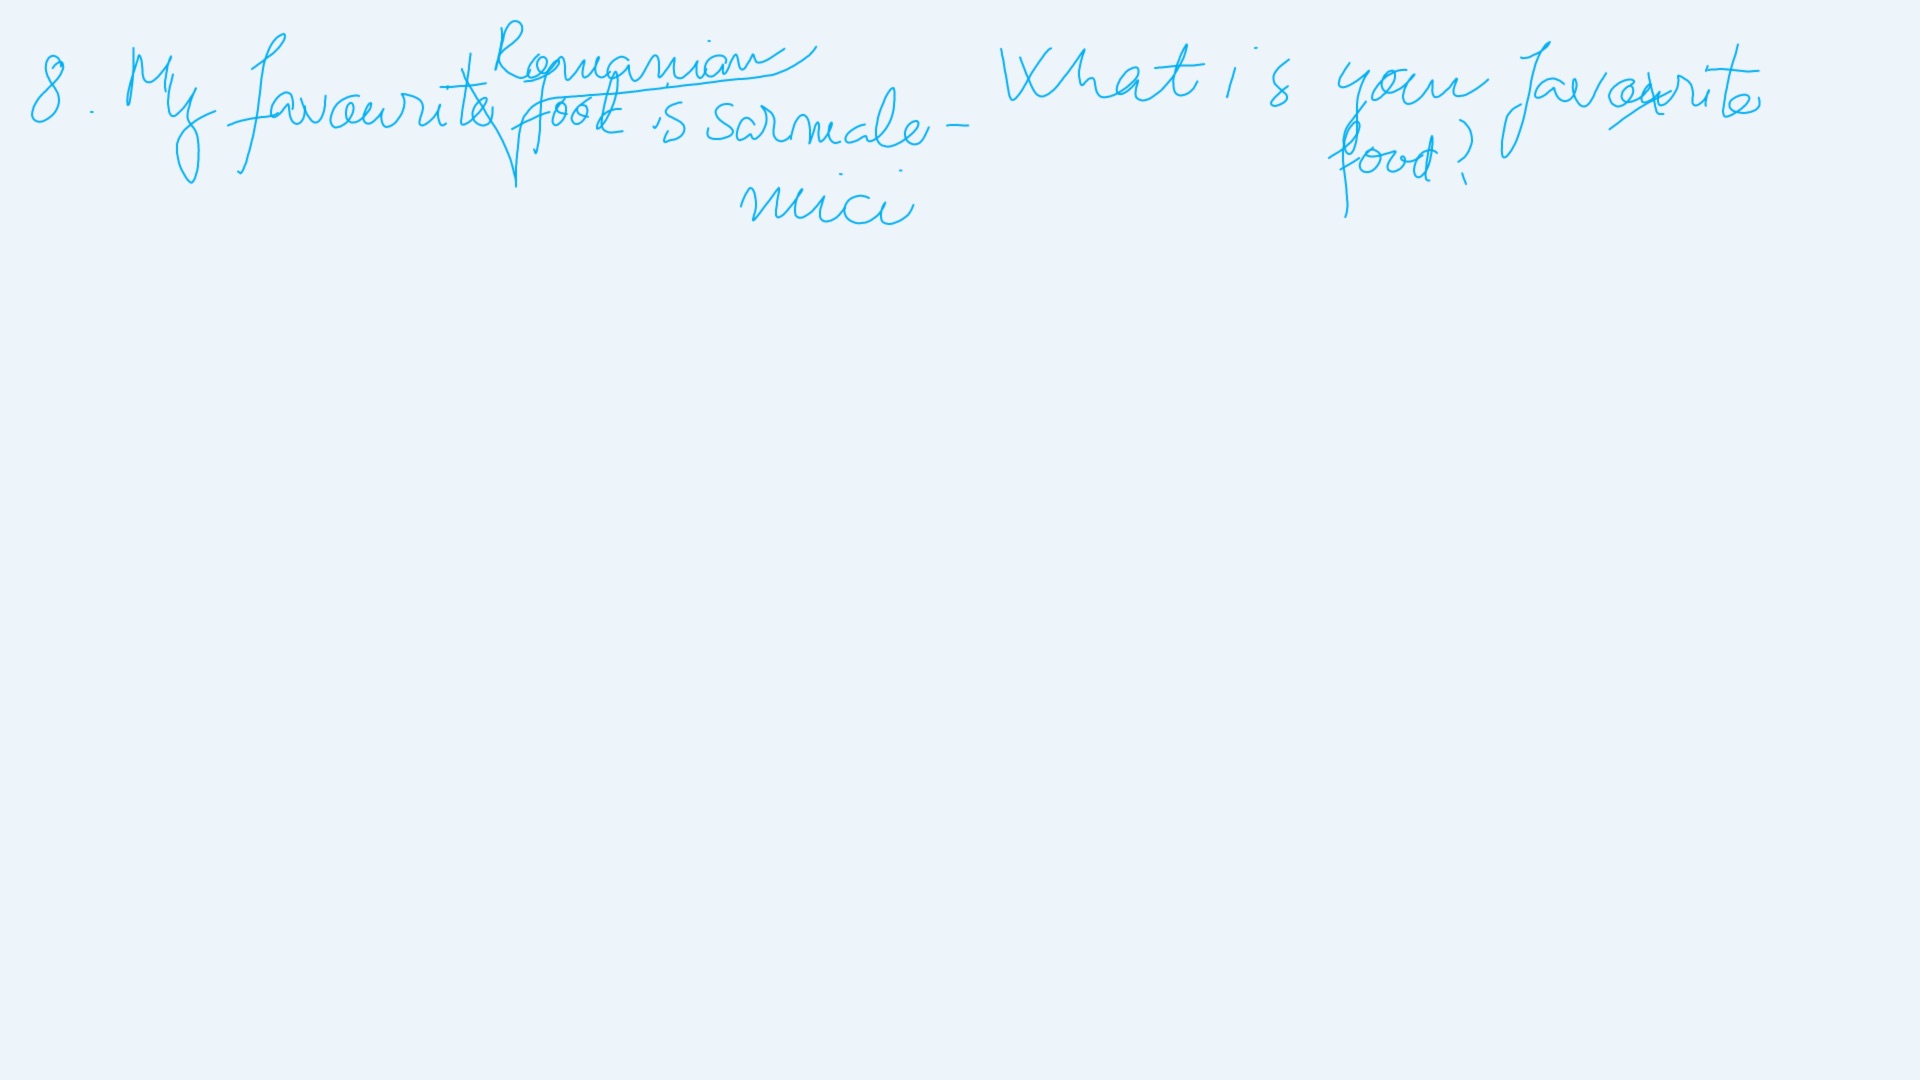 8. My favourite Romanian food is sarmale - What is your favourite
mici food?